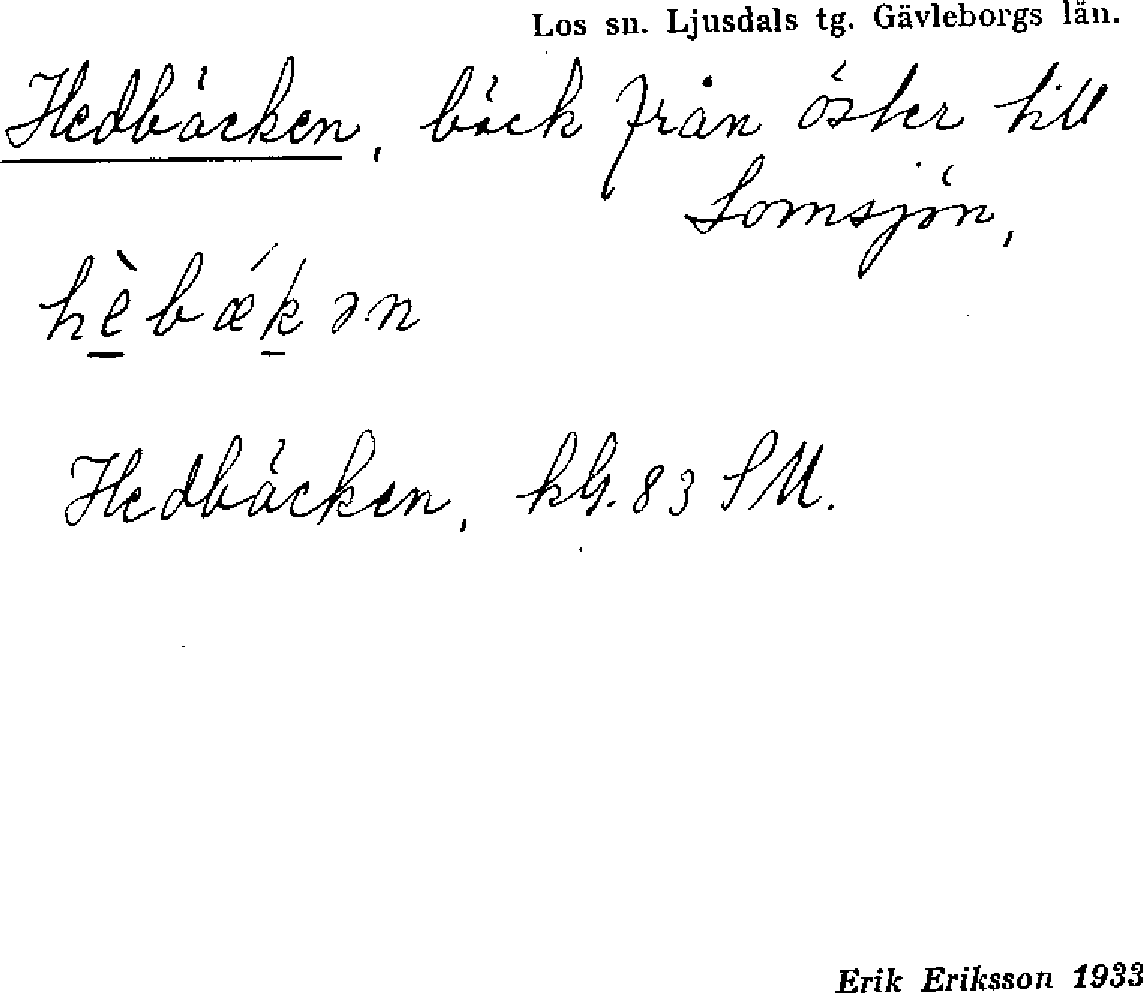 Los sn. Ljusdals tg. Gävleborgs län.
Hedbäcken, bäck från öster till
Lomsjön,
hèbǽkən
Hedbäcken, kG. 83 SM.
Erik Eriksson 1933